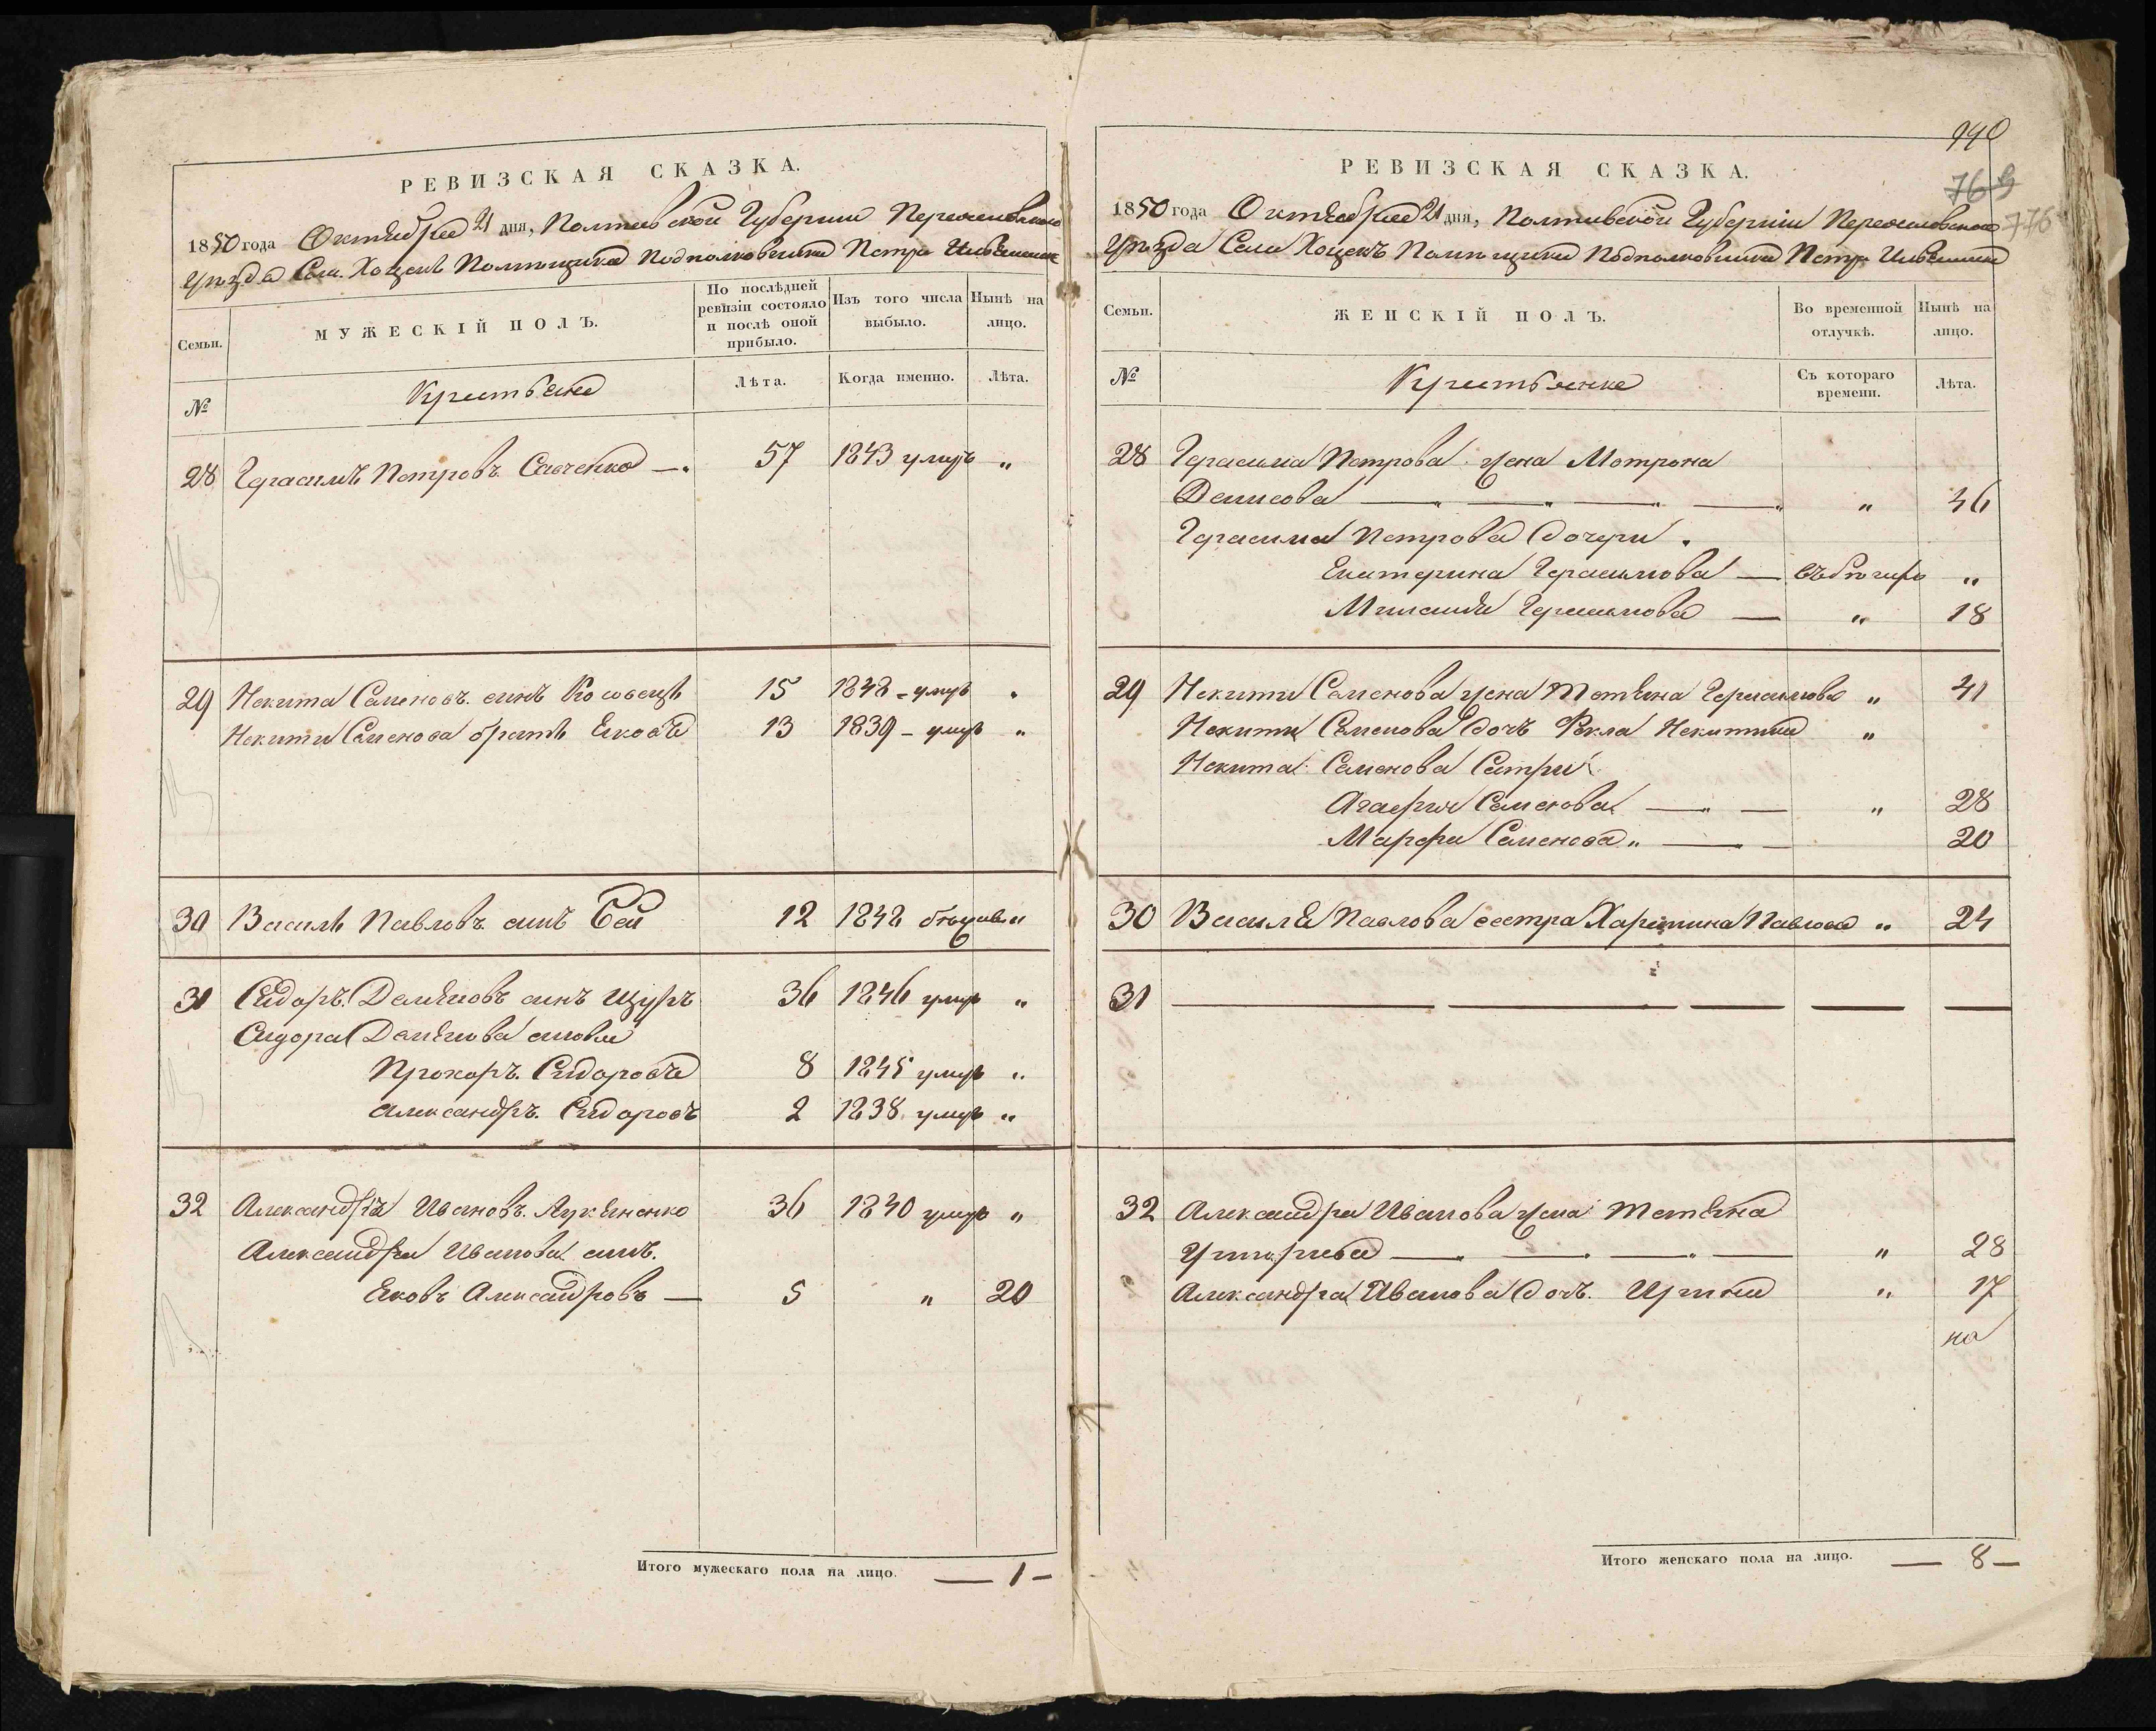 РЕВИЗСКАЯ СКАЗКА.
1850 года Октября 21 дня, Полтавской Губернии Переяславскаго
Уѣзда Села Хоцекъ Помѣщика Подполковника Петра
Семьи.
МУЖЕСКІЙ ПОЛЪ.
По послѣдней ревизіи состояло и послѣ оной прибыло.
Изъ того числа выбыло.
Нынѣ на лицо.
№
Крестьяне
Лѣта.
Когда именно.
Лѣта.
28 Герасимъ Петровъ Савченко —. 57 1843 умръ "
29 Никита Семеновъ синъ 15 1848 - умръ "
Никити Семенова братъ Яковъ 13 1839 - умръ "
30 Василь Павловъ синъ 12 1848 "
31 Сидоръ Демяновъ синъ Щуръ 36 1846 умръ "
Сидора Демянова синовя
Прохоръ Сидоровъ 8 1845 умръ "
Александръ Сидоровъ 2 1838 умръ "
32 Александръ Ивановъ Лукяненко 36 1840 умръ "
Александра Иванова синъ.
Яковъ Александровъ — 5 " 20
Итого мужескаго пола на лицо. — 1 —
940
769
776
РЕВИЗСКАЯ СКАЗКА.
1850 года Октября 21 дня, Полтавской Губерніи Переяславскаго
Уѣзда Села Хоцекъ Помѣщика Подполковника Петра
Семьи.
ЖЕНСКІЙ ПОЛЪ.
Во временной отлучкѣ.
Нынѣ на лицо.
№
Крестьянки
Съ котораго времени.
Лѣта.
28 Герасима Петрова жена Мотрона
Денисова — " — " — " — " " 46
Герасима Петрова дочери.
Екатерина Герасимова — "
Герасимова — " 18
29 Никити Семенова жена Тетяна Герасимова " 41
Никити Семенова дочь Фекла Никитина "
Никита Семенова Сетри
Агафия Семенова — " — " 28
Марфа Семенова " — — 20
30 Василя Павлова сестра Харитина Павлова " 24
31 — — — — —
32 Александра Иванова жена Тетяна
Григорьева — . — . — " — " 28
Александра Иванова дочь. Ирина " 17
на
Итого женскаго пола на лицо. — 8 —